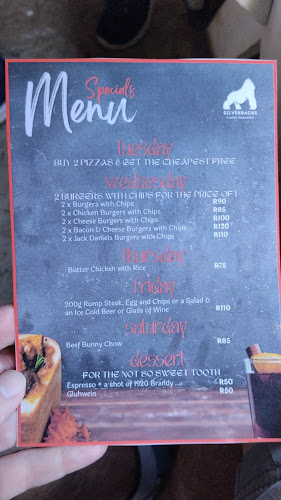 Specials
Menu
SILVERBACKS
tuesday
BUY 2 PIZZAS & GET THE CHEAPEST FREE
wednesday
2 BURGERS WITH CHIPS FOR THE PRICE OF 1
2 x Burgers with Chips R90
2 x Chicken Burgers with Chips R85
2 x Cheese Burgers with Chips R100
2 x Bacon & Cheese Burgers with Chips R120
2 x Jack Daniels Burgers with Chips R110
thursday
Butter Chicken with Rice R75
friday
200g Rump Steak, Egg and Chips or a Salad &
an Ice Cold Beer or Glass of Wine R110
saturday
Beef Bunny Chow R85
dessert
FOR THE NOT SO SWEET TOOTH
Espresso + a shot of 1920 Brandy R50
Gluhwein R50